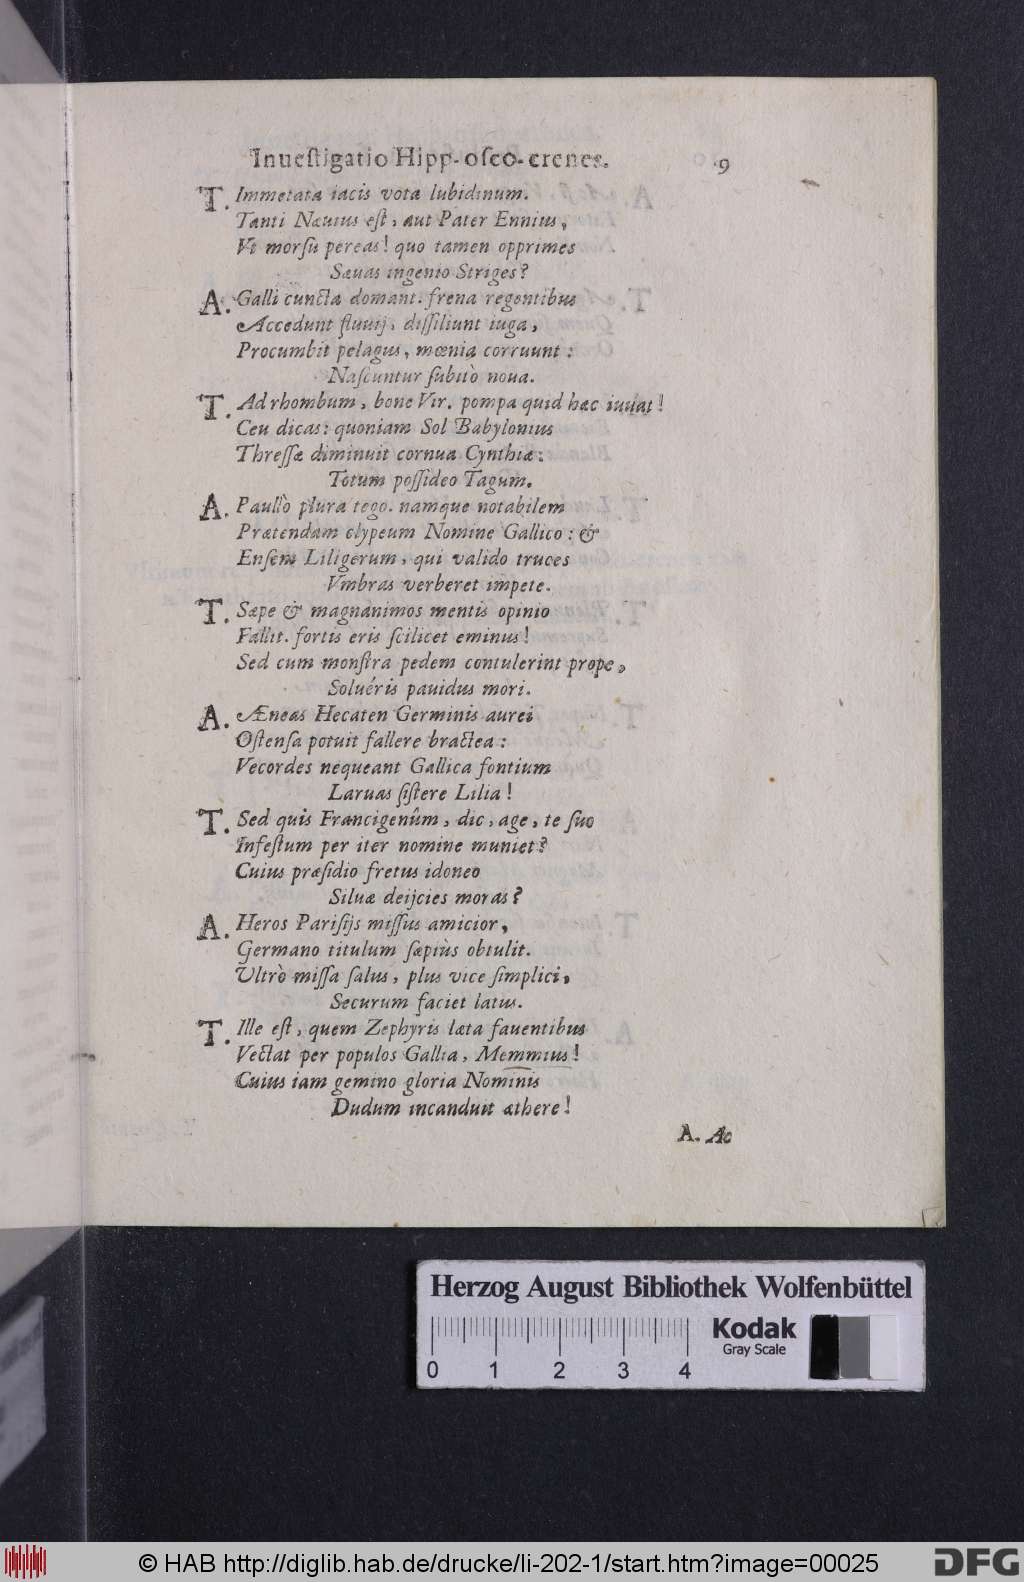 Inueſtigatio Hipp-oſco-crenes. 9
T. Immetata iacis vota lubidinum.
Tanti Næuius eſt, aut Pater Ennius,
Vt morſu pereas! quo tamen opprimes
Sæuas ingenio Striges?
A. Galli cuncta domant. frena regentibus
Accedunt fluuij, diſſiliunt iuga,
Procumbit pelagus, mœnia corruunt:
Naſcuntur ſubitò noua.
T. Ad rhombum, bone Vir. pompa quid hæc iuuat!
Ceu dicas: quoniam Sol Babylonius
Threſſæ diminuit cornua Cynthiæ:
Totum poſſideo Tagum.
A. Paullò plura tego. namque notabilem
Prætendam clypeum Nomine Gallico: &
Enſem Liligerum, qui valido truces
Vmbras verberet impete.
T. Sæpe & magnanimos mentis opinio
Fallit. fortis eris ſcilicet eminus!
Sed cum monſtra pedem contulerint prope,
Soluéris pauidus mori.
A. Æneas Hecaten Germinis aurei
Oſtenſa potuit fallere bractea:
Vecordes nequeant Gallica fontium
Laruas ſiſtere Lilia!
T. Sed quis Francigenûm, dic, age, te ſuo
Infeſtum per iter nomine muniet?
Cuius præſidio fretus idoneo
Siluæ deijcies moras?
A. Heros Pariſijs miſſus amicior,
Germano titulum ſæpiùs obtulit.
Vltrò miſſa ſalus, plus vice ſimplici,
Securum faciet latus.
T. Ille eſt, quem Zephyris læta fauentibus
Vectat per populos Gallia, Memmius!
Cuius iam gemino gloria Nominis
Dudum incanduit æthere!
A. Ac
Herzog August Bibliothek Wolfenbüttel
Kodak
Gray Scale
0 1 2 3 4
© HAB http://diglib.hab.de/drucke/li-202-1/start.htm?image=00025
DFG